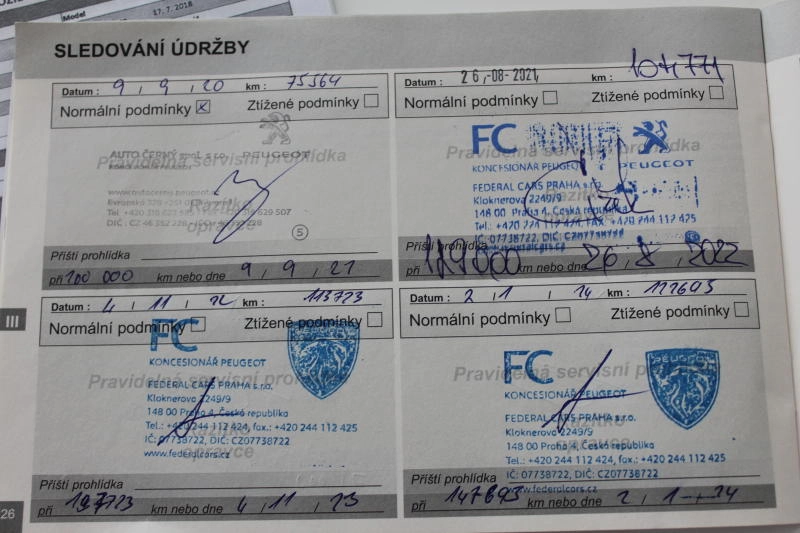 17. 7. 2018
Model
SLEDOVÁNÍ ÚDRŽBY
Datum : 9 , 9 , 20 km : 75564
Normální podmínky x Ztížené podmínky
Pravidelná servisní prohlídka
AUTO ČERNÝ spol. s r.o. PEUGEOT
www.autocerny.peugeot.cz
DIČ : CZ 46 352 228
Razítko
opravce
5
Příští prohlídka
při 100 000 km nebo dne 9 , 9 , 21
Datum : 26 -08- 2021 km : 104771
Normální podmínky Ztížené podmínky
FC
Pravidelná servisní prohlídka
KONCESIONÁŘ PEUGEOT PEUGEOT
FEDERAL CARS PRAHA s.r.o.
Kloknerova 2249/9
148 00 Praha 4, Česká republika
Razítko
Tel.: +420 244 112 424, fax.: +420 244 112 425
IČ: 07738722, DIČ: CZ07738722
Příští prohlídka
při km nebo dne 26 , 8 , 2022
III
Datum : 4 , 11 , 22 km : 113723
Normální podmínky Ztížené podmínky
FC
KONCESIONÁŘ PEUGEOT PEUGEOT
Pravidelná servisní prohlídka
FEDERAL CARS PRAHA s.r.o.
Kloknerova 2249/9
148 00 Praha 4, Česká republika
Razítko
Tel.: +420 244 112 424, fax.: +420 244 112 425
IČ: 07738722, DIČ: CZ07738722
opravce
www.federalcars.cz
Příští prohlídka
při km nebo dne 4 , 11 , 23
Datum : 2 , 1 , 24 km : 122693
Normální podmínky Ztížené podmínky
FC
PEUGEOT
Pravidelná servisní prohlídka
KONCESIONÁŘ PEUGEOT
FEDERAL CARS PRAHA s.r.o.
Kloknerova 2249/9
Razítko
148 00 Praha 4, Česká republika
opravce
Tel.: +420 244 112 424, fax.: +420 244 112 425
IČ: 07738722, DIČ: CZ07738722
www.federalcars.cz
Příští prohlídka
při 147693 km nebo dne 2 , 1 , 24
26